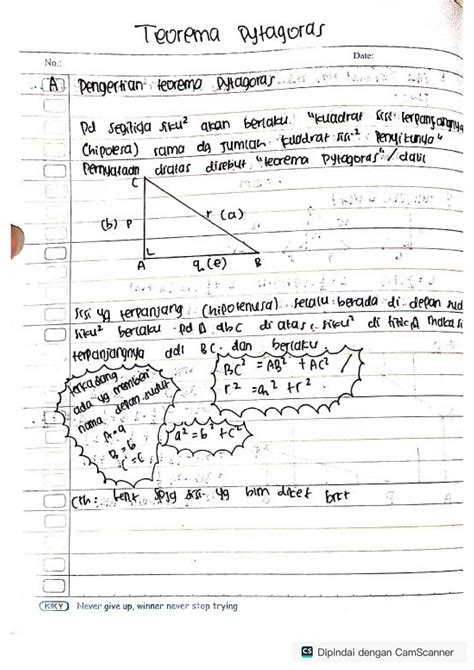 Teorema Pytagoras
No.:
Date:
A Pengertian teorema Pytagoras
Pd segitiga siku² akan berlaku "kuadrat sisi terpanjangnya
(hipotesa) sama dg jumlah kuadrat sisi² penyikunya"
Pernyataan diatas disebut "teorema Pytagoras" / dalil
C
(b) P
r (a)
A
q (e)
B
sisi yg terpanjang (hipotenusa) selalu berada di depan sud
siku² berlaku pd Δ abc di atas, siku² di titik A maka si
terpanjangnya adl BC dan berlaku
terkadang
ada yg memberi
nama depan sudut
A = a
B = b
C = c
BC² = AB² + AC² /
r² = q² + r²
a² = b² + c²
Cth: tent sisi yg blm diket
KIKY Never give up, winner never stop trying
CS Dipindai dengan CamScanner